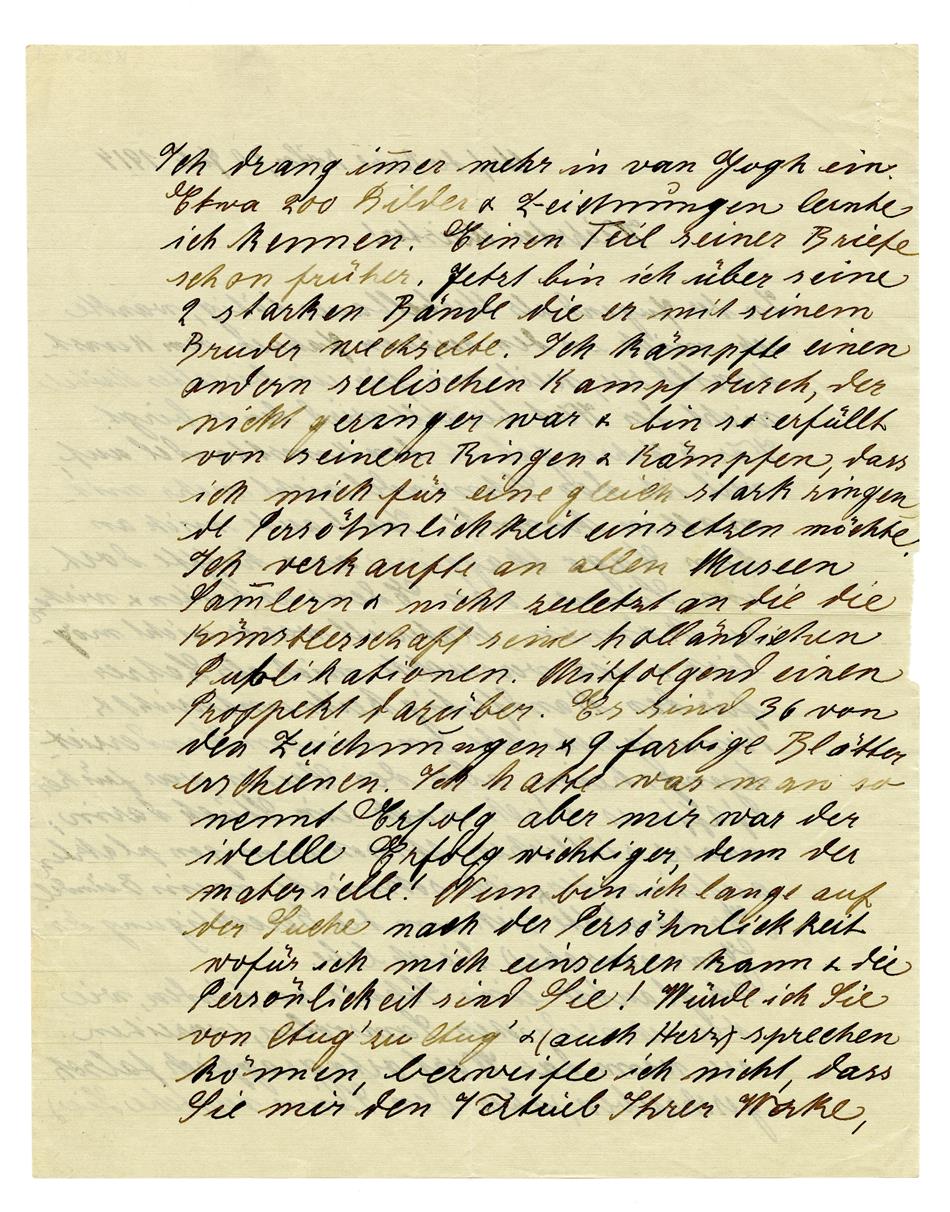 Ich drang im̄er mehr in van Gogh ein.
Etwa 200 Bilder & Zeichnungen lernte
ich kennen. Einen Teil seiner Briefe
schon früher. Jetzt bin ich über seine
2 starken Bände die er mit seinem
Bruder wechselte. Ich kämpfte einen
andern seelischen Kampf durch, der
nicht geringer war & bin so erfüllt
von seinem Ringen & Kämpfen, dass
ich mich für eine gleich stark ringen
de Persöhnlichkeit einsetzen möchte.
Ich verkaufte an allen Museen
Sam̄lern & nicht zuletzt an die die
Künstlerschaft seine holländischen
Publikationen. Mitfolgend einen
Prospekt darüber. Es sind 36 von
den Zeichnungen & 9 farbige Blätter
erschienen. Ich hatte was man so
nennt Erfolg, aber mir war der
idellle Erfolg wichtiger, denn der
materielle! Nun bin ich lange auf
der Suche nach der Persöhnlickkeit
wofür ich mich einsetzen kann & die
Persönlickeit sind Sie! Würde ich Sie
von Aug' zu Aug' & (auch Herz) sprechen
können, berweifle ich nicht, dass
Sie mir den Vertrieb Ihrer Werke,